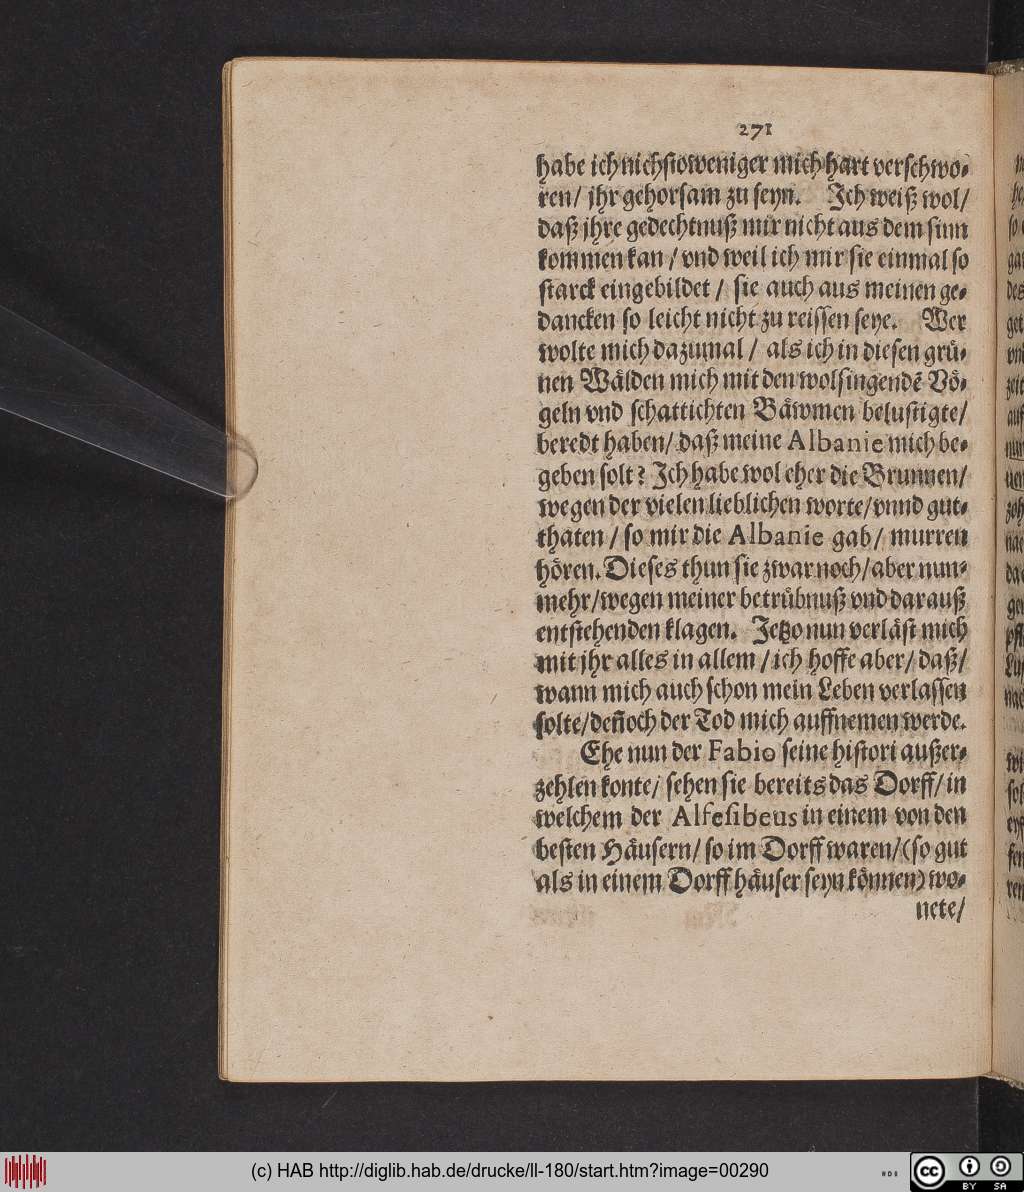 271
habe ich nichstoweniger mich hart verschwo⸗
ren/ jhr gehorsam zu seyn. Ich weiß wol/
daß jhre gedechtnuß mir nicht aus dem sinn
kommen kan / vnd weil ich mir sie einmal so
starck eingebildet / sie auch aus meinen ge⸗
dancken so leicht nicht zu reissen seye. Wer
wolte mich dazumal / als ich in diesen gruͤ⸗
nen Waͤlden mich mit den wolsingendẽ Voͤ⸗
geln vnd schattichten Baͤwmen belustigte/
beredt haben/ daß meine Albanie mich be⸗
geben solt? Ich habe wol eher die Brunnen/
wegen der vielen lieblichen worte/ vnnd gut⸗
thaten / so mir die Albanie gab/ murren
hoͤren. Dieses thun sie zwar noch/ aber nun⸗
mehr/ wegen meiner betruͤbnuß vnd darauß
entstehenden klagen. Jetzo nun verlaͤst mich
mit jhr alles in allem / ich hoffe aber/ daß/
wann mich auch schon mein Leben verlassen
solte/ deñoch der Tod mich auffnemen werde.
Ehe nun der Fabio seine histori außer⸗
zehlen konte/ sehen sie bereits das Dorff/ in
welchem der Alfesibeus in einem von den
besten Haͤusern/ so im Dorff waren/ (so gut
als in einem Dorff haͤuser seyn koͤnnen) wo⸗
nete/
(c) HAB http://diglib.hab.de/drucke/ll-180/start.htm?image=00290
cc BY SA